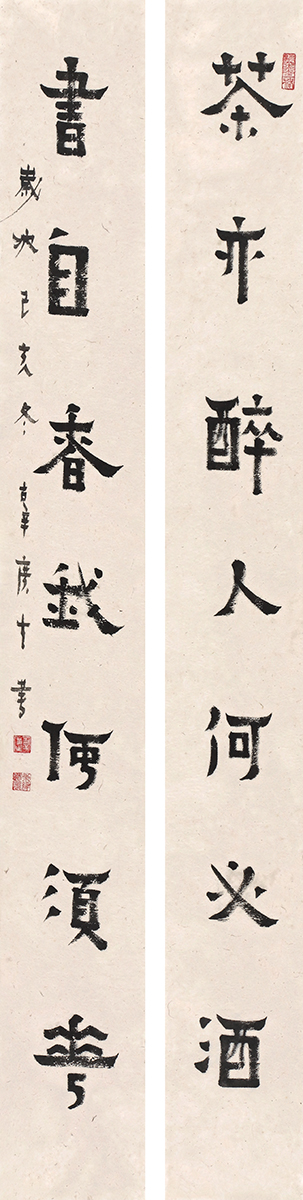 茶亦醉人何必酒
書自香我何須華
歲次己亥冬 書